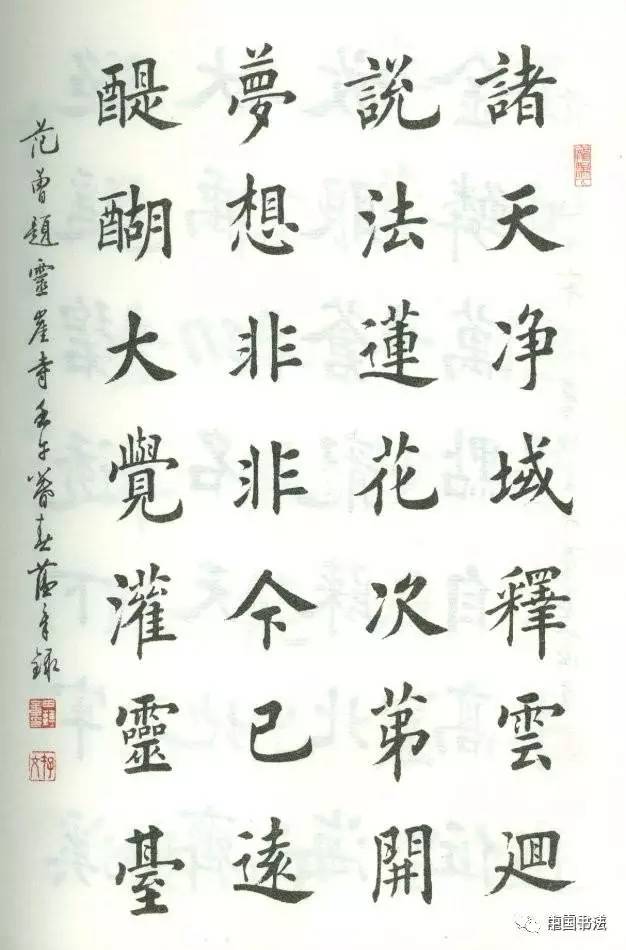 諸天净域釋雲廻
說法蓮花次苐開
夢想非非今已遠
醍醐大覺灌靈臺
范曾題靈崖寺壬午暮春蕴手錄
中国书法